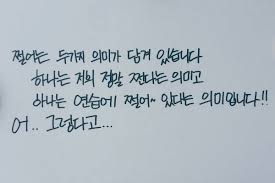 쩔에는 두가지 의미가 담겨 있습니다
하나는 저희 정말 쩐다는 의미고
하나는 연습에 쩔어~ 있다는 의미입니다!!
어.. 그렇다고...